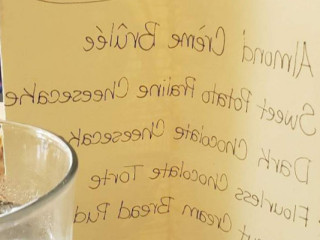 Almond Crème Brûlée
Sweet Potato Praline Cheesecake
Dark Chocolate Cheesecak
Flourless Chocolate Torte
Cream Bread Pud